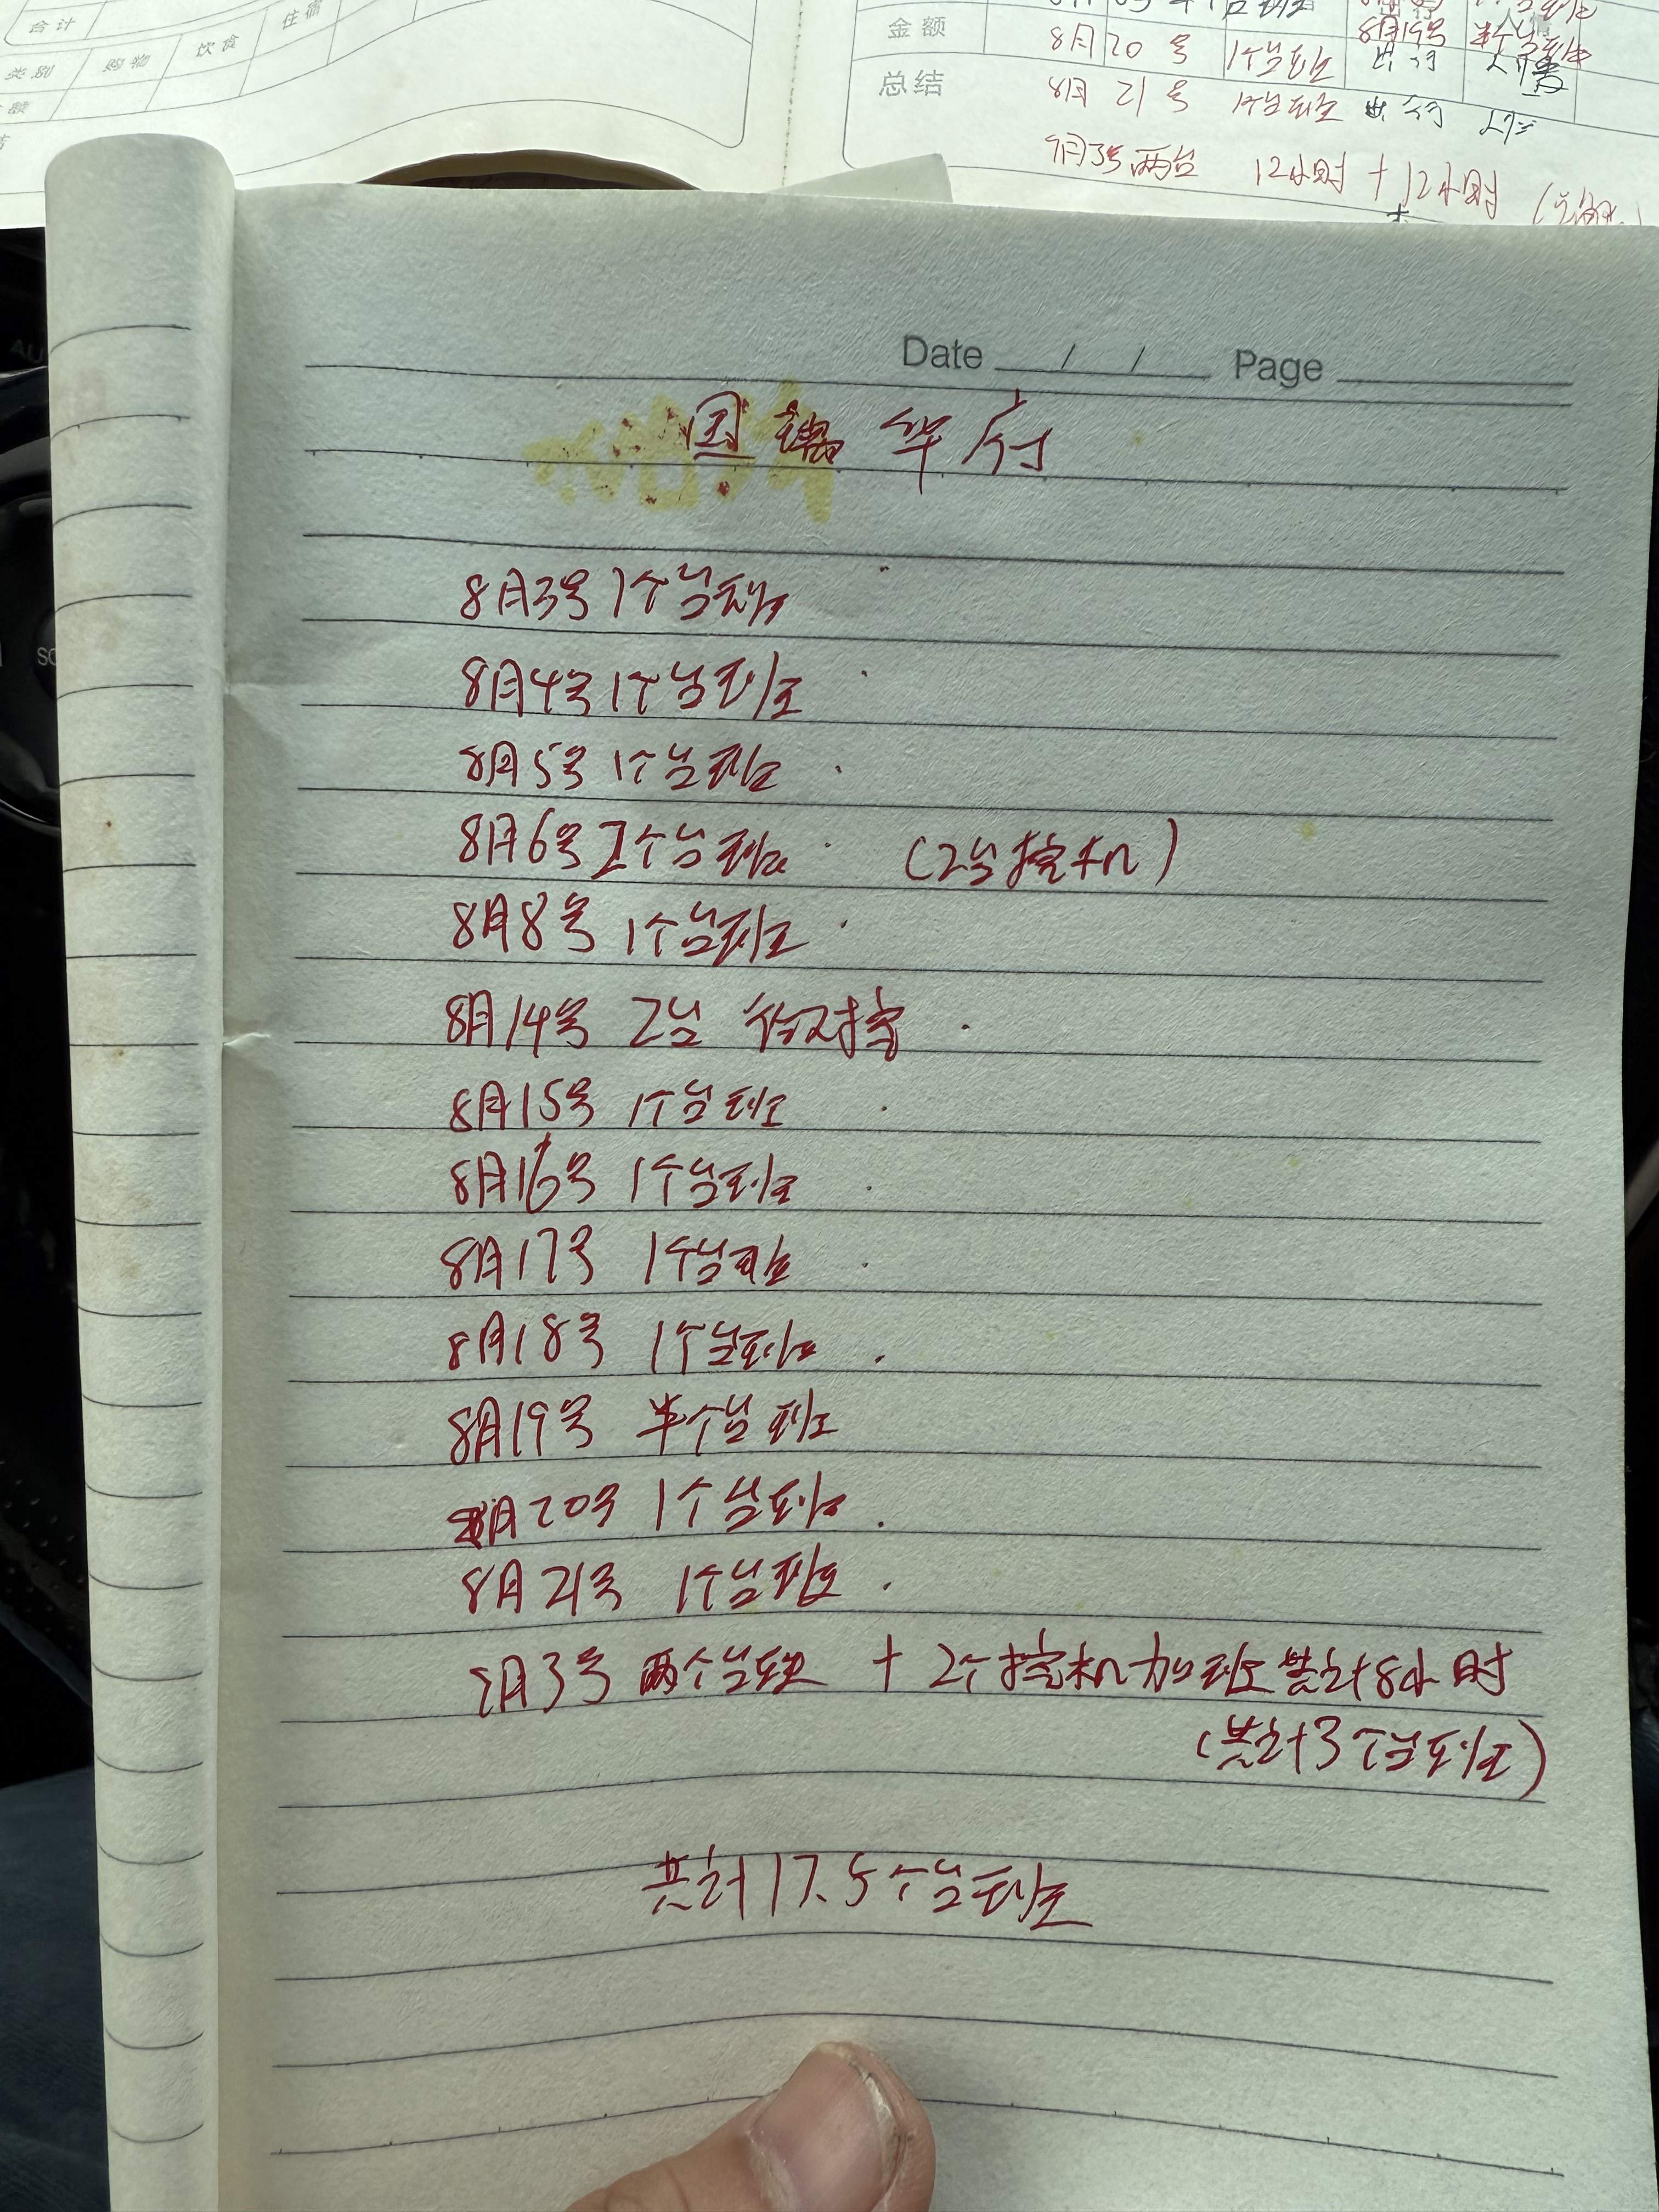 合计
住宿
类别 购物 饮食
金额
8月20号 1个台班 出行
8月19号 半个台班
总结
8月21号 1个台班 出行
9月3号两台 12小时+12小时
Date / / Page
国瑞华府
8月3号 1个台班
8月4号 1个台班
8月5号 1个台班
8月6号 2个台班 (2台挖机)
8月8号 1个台班
8月14号 2台 微挖
8月15号 1个台班
8月16号 1个台班
8月17号 1个台班
8月18号 1个台班
8月19号 半个台班
8月20号 1个台班
8月21号 1个台班
9月3号 两个台班 + 2个挖机加班共计8小时
(共计3个台班)
共计17.5个台班